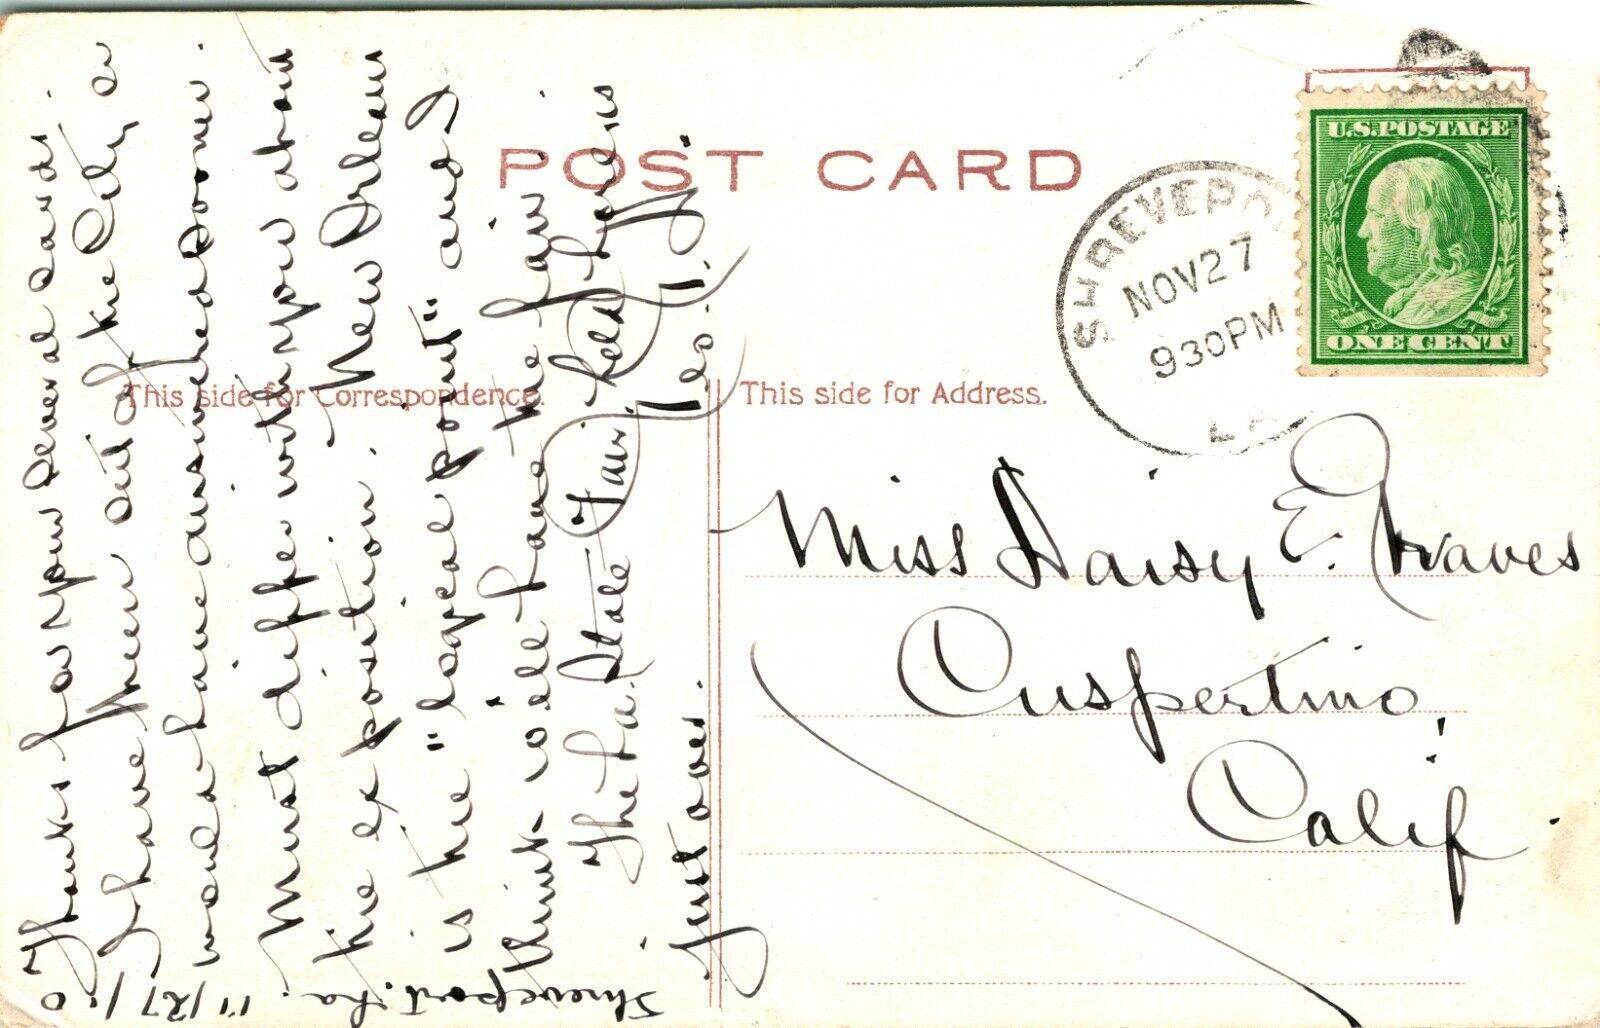 POST CARD
This side for Correspondence.
This side for Address.
SHREVEPO
NOV 27
930PM
LA
U.S. POSTAGE
ONE CENT
Miss Daisy E. Graves
Cuspertino,
Calif
Shreveport. La. 11/27/10
Thanks for your several cards.
I have been out of the City or
would have answered sooner.
Must differ with you about
the exposition. New Orleans
is the "logical point" and I
think will have the fair.
The La. State Fair held here is
just over. Geo. J. N.